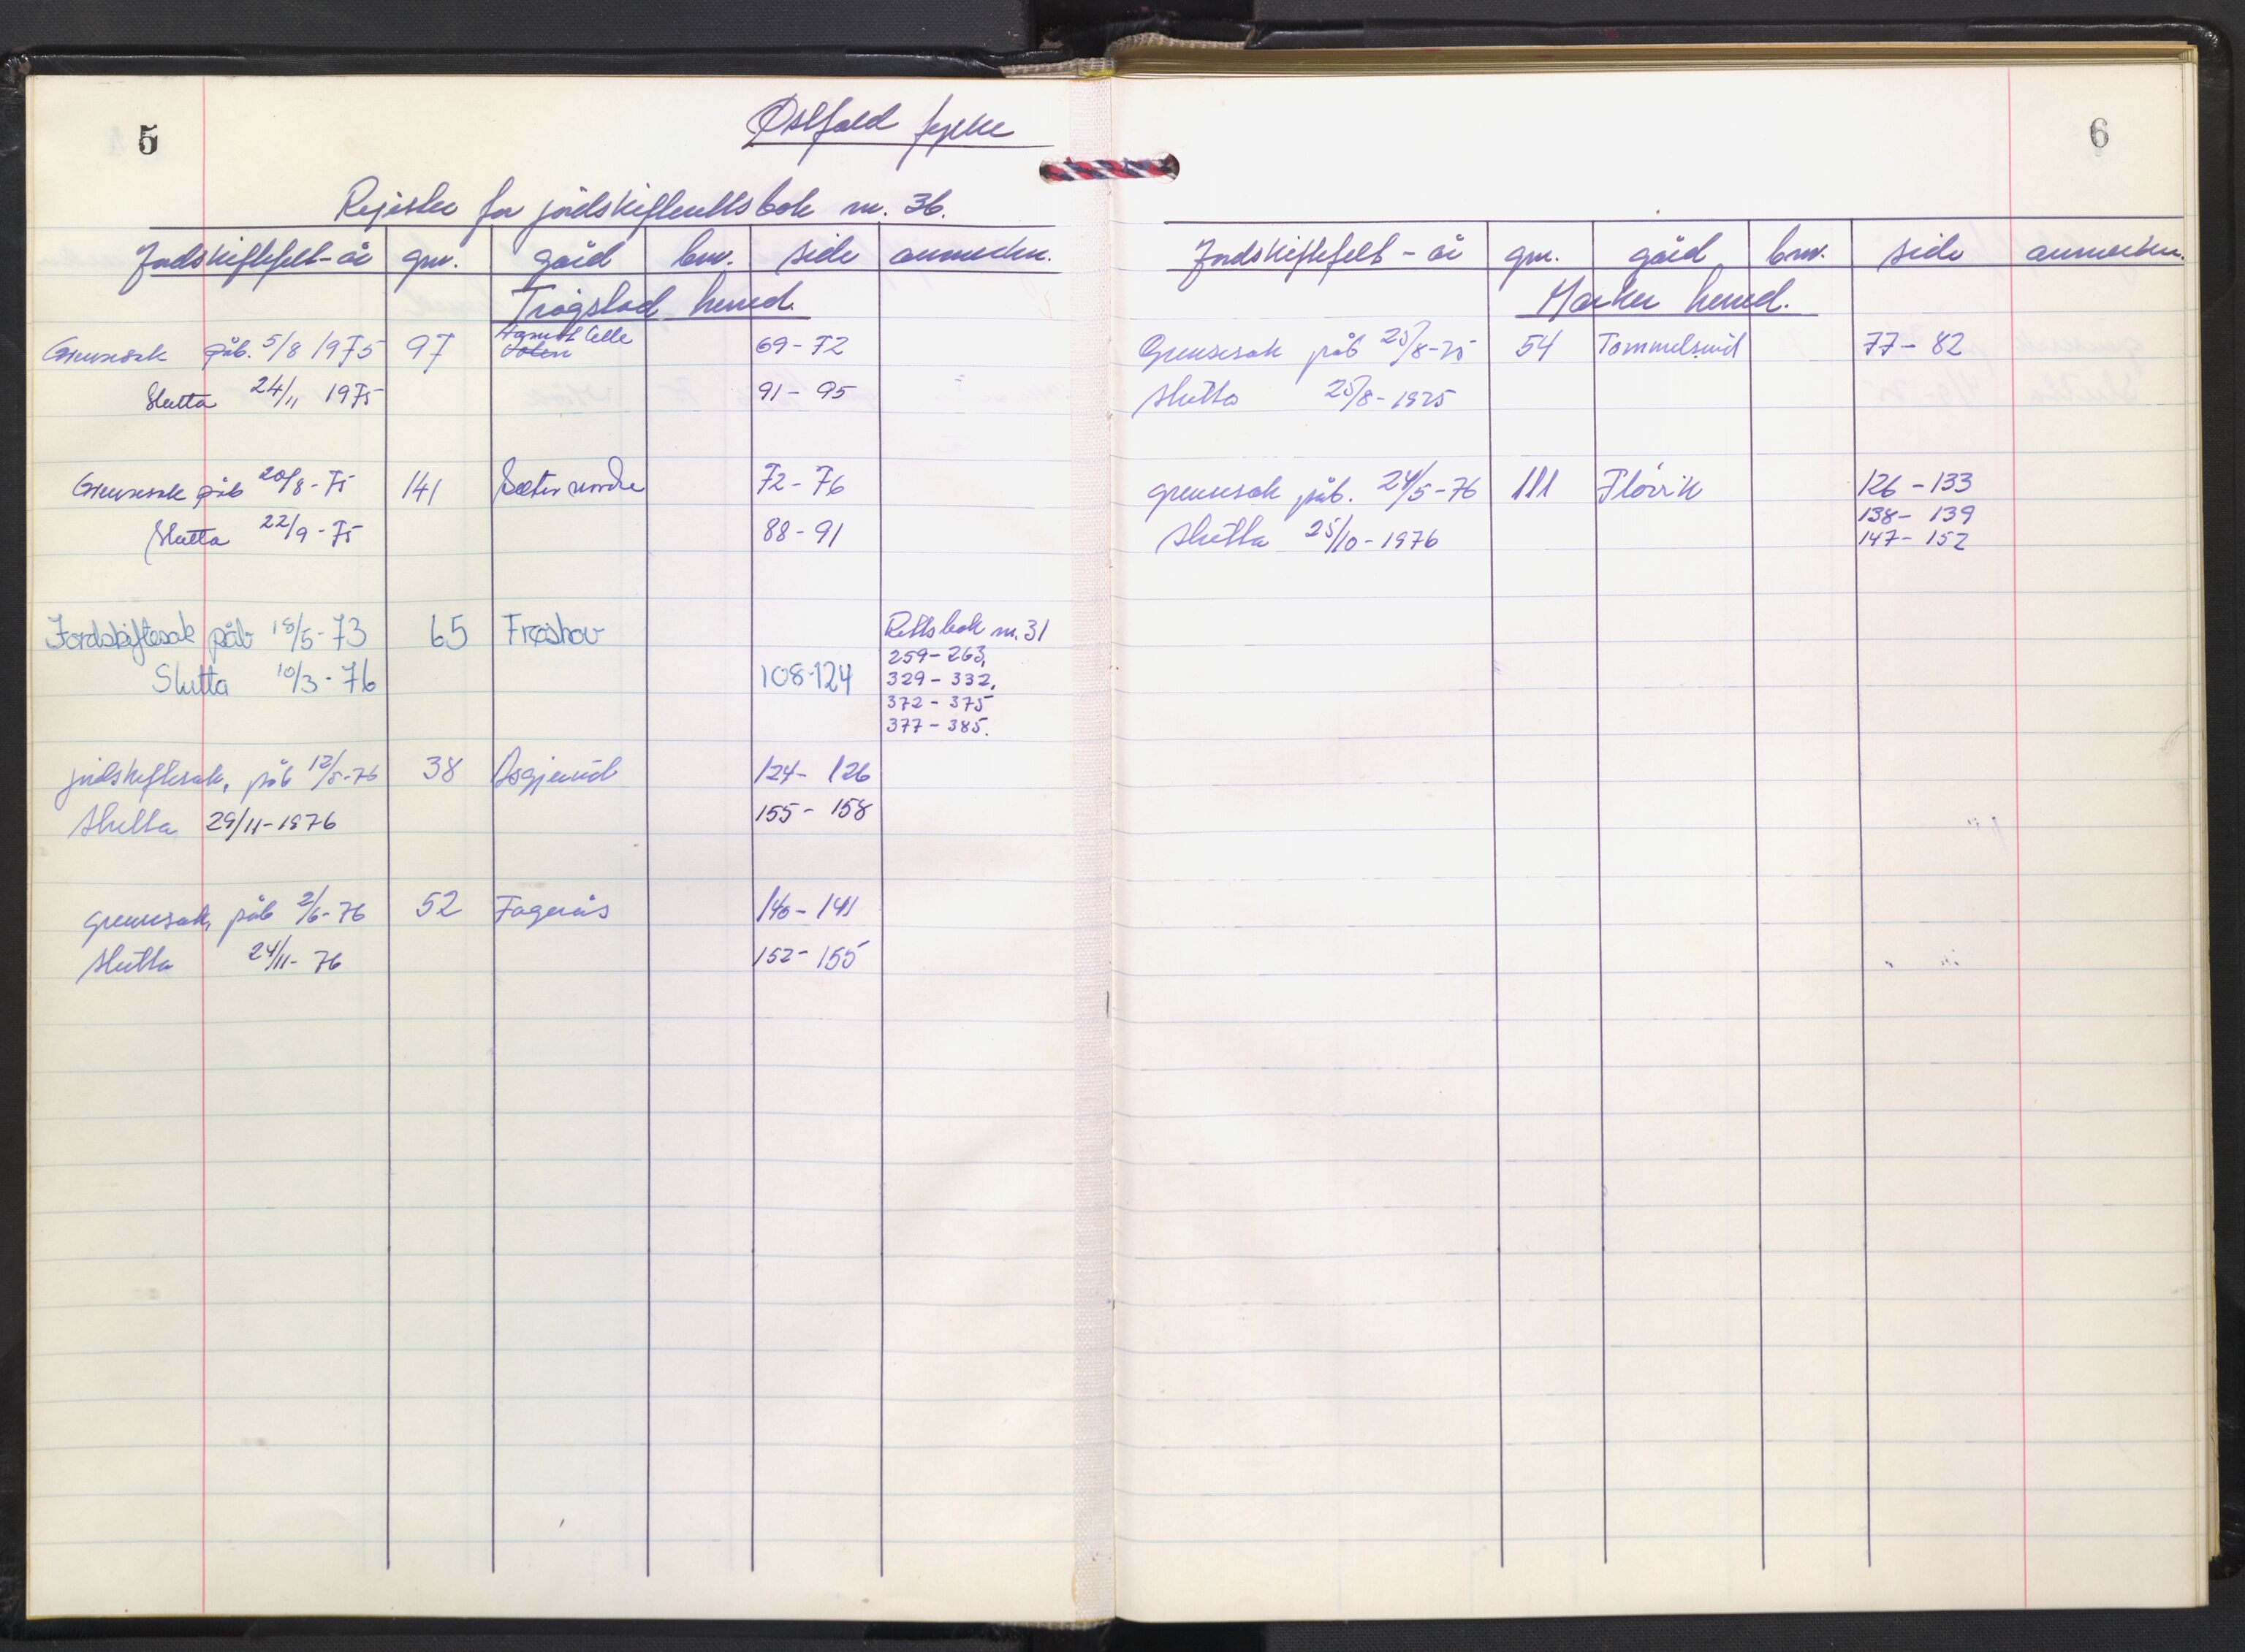 5
Østfold fylke
Register for jordskifterettsbok nr. 36.
Jordskiftefelt-år gnr. gård bnr. side anmerkn.
Trøgstad herred.
Grensesak påb. 5/8 1975 97 69-72
Slutta 24/11 1975 91-95
Grensesak påb 20/8-75 141 Sæter nordre 72-76
Slutta 22/9-75 88-91
Jordskiftesak påb 18/5-73 65 Frøshov Rettsbok nr. 31
259-263,
Slutta 10/3-76 108-124 329-332,
372-375
377-385.
jordskiftesak, påb 12/5-76 38 Asgjerud 124-126
Slutta 29/11-1976 155-158
grensesak, påb 2/6-76 52 Fagerås 140-141
Slutta 24/11-76 152-155
6
Jordskiftefelt-år gnr. gård bnr. side anmerkn.
Marker herred.
Grensesak påb 25/8-75 54 Tommelsrud 77-82
Slutta 25/8-1975
grensesak påb. 24/5-76 111 Fløvik 126-133
138-139
Slutta 25/10-1976 147-152